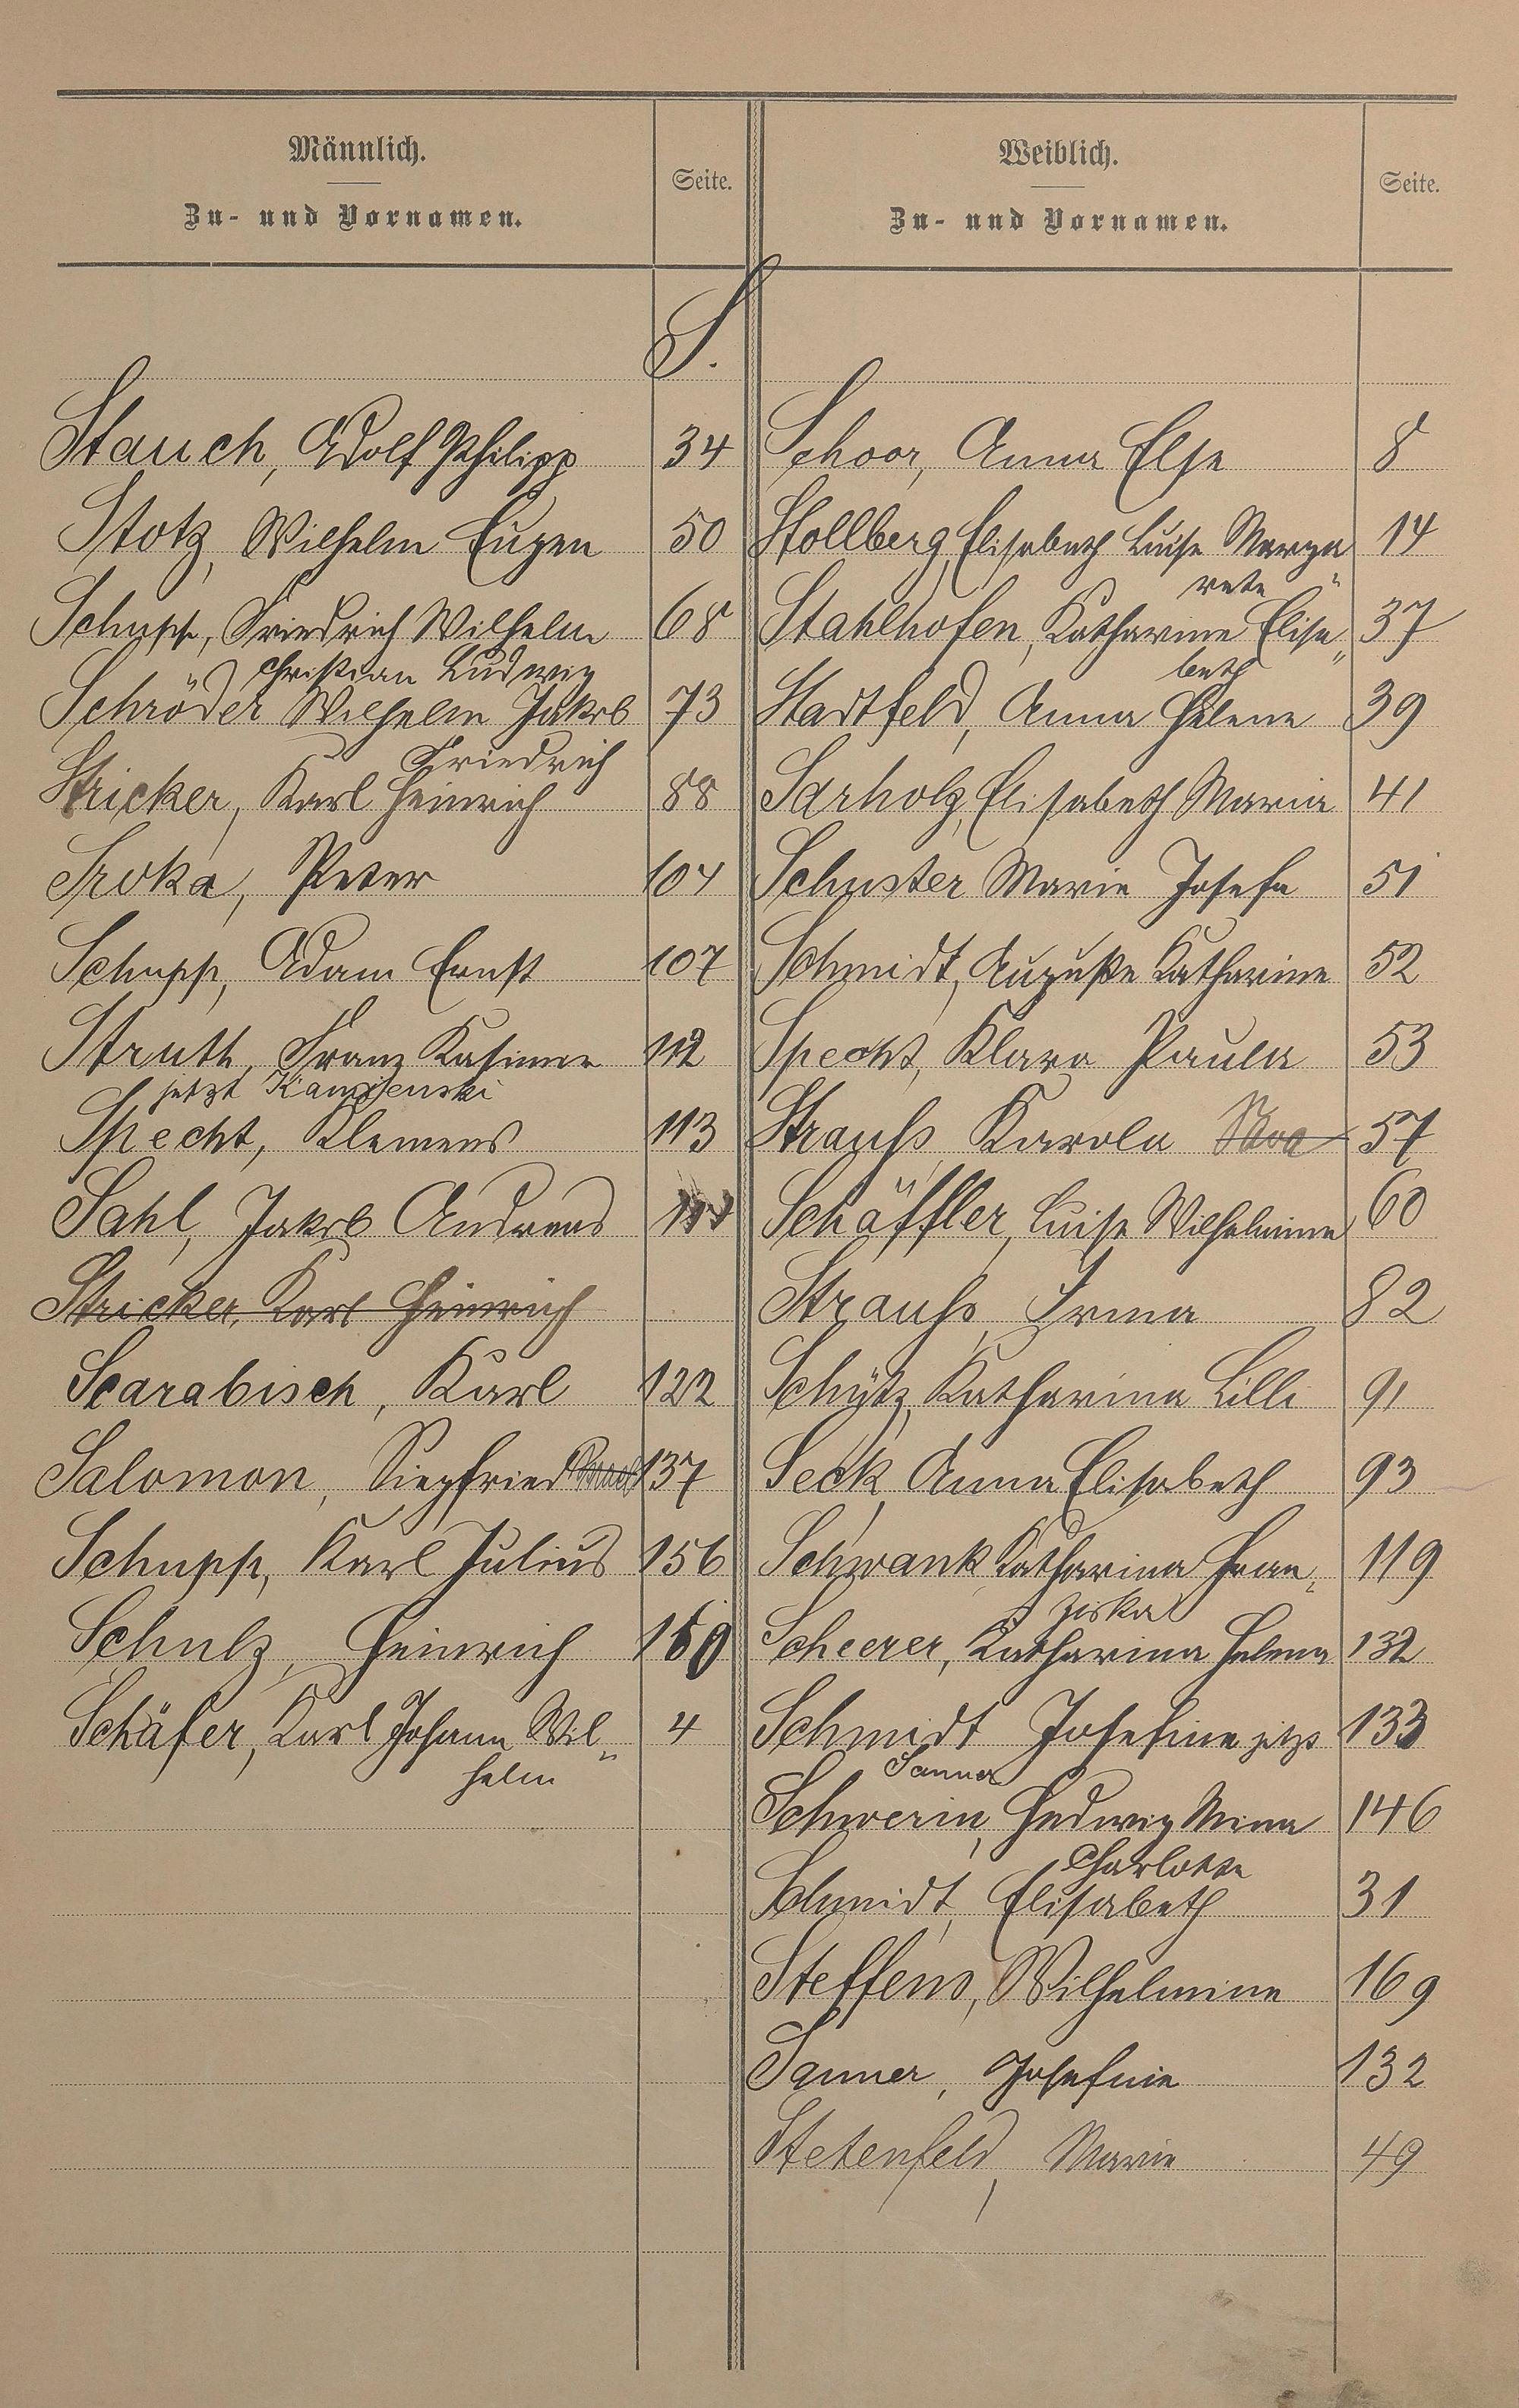 Männlich.
Zu- und Vornamen.
Seite.
Weiblich.
Zu- und Vornamen.
Seite.
S.
Stauch, Adolf Philipp 34
Stotz, Wilhelm Eugen 50
Schupp, Friedrich Wilhelm 68
Christian Ludwig
Schröder Wilhelm Jakob 73
Friedrich
Stricker, Karl Heinrich 88
Sroka, Peter 104
Schupp, Adam Ernst 107
Struth, Franz Kasimir 112
jetzt
Specht, Klemens 113
Sahl, Jakob Andreas
Stricker, Karl Heinrich
Scarabisch, Karl 122
Salomon, Siegfried Israel 137
Schupp, Karl Julius 156
Schulz, Heinrich
Schäfer, Karl Johann Wil„ 4
helm
Schoor, Anna Else 8
Stollberg, Elisabeth Luise Marga„ 14
rete
Stahlhofen, Katharine Elisa„ 37
beth
Stadtfeld, Anna Helene 39
Sarholz, Elisabeth Maria 41
Schuster Marie Josefa 51
Schmidt, Auguste Katharine 52
Specht, Klara Paula 53
Strauß Karola 57
Schäffler, Luise Wilhelmine 60
Strauß, Irma 82
Schütz, Katharina Lilli 91
Seck, Anna Elisabeth 93
Schwank, Katharina Fran„ 119
ziska
Scheerer, Katharina Helena 132
Schmidt Josefine jetzt 133
Sanner
Schwerin, Hedwig Mina 146
Charlotte
Schmidt, Elisabeth 31
Steffens, Wilhelmine 169
Sanner, Josefine 132
Stetenfeld, Marie 49